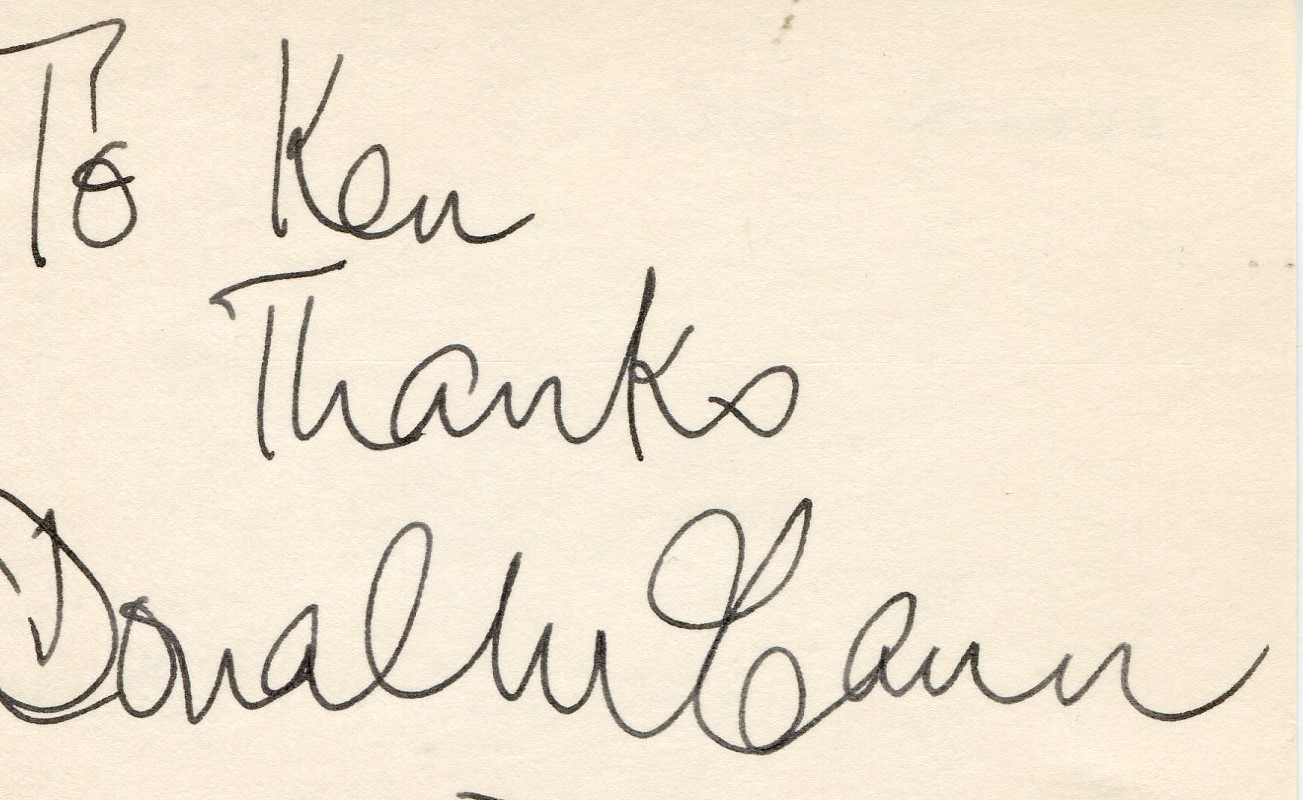 To Ken
Thanks
Donald McCann